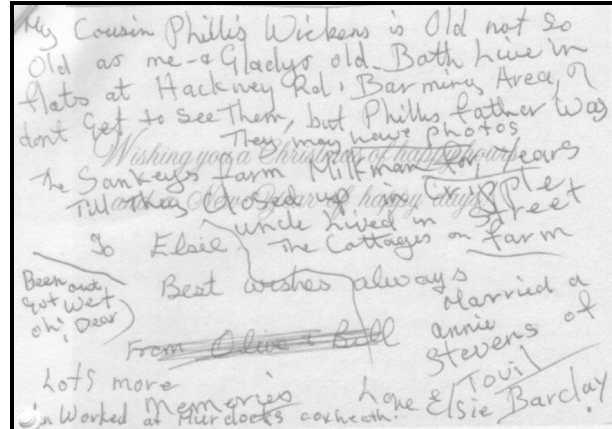 My Cousin Phillis Wickens is Old not so
Old as me & Gladys old. Both Live in
flats at Hackney Rd. Barming Area, I
dont get to see Them, but Phillis father was
They may have photos
Wishing you a Christmas of happy hours
The Sankeys farm Milkman for years
and a New Year of happy days
Till they closed up in Cripple
Street
uncle Lived in
To Elsie. The Cottages on farm
Best wishes always
Been out
got wet
oh! Dear
Married a
annie
Stevens of
Tovil
From Olive & Bill
Lots more
Memories
Love Elsie Barclay.
in Worked at Murdocks coxheath.